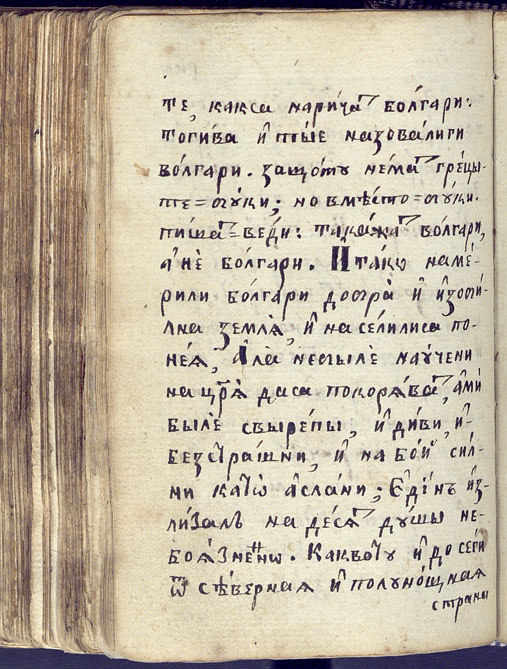 те, какса нарича͡т бо́лгари:
тоги́ва и҆ тые назовали ги
во́лгари. защо́ту нема͡т гре́цы-
те = бу́ки; но вмѣ́сто = бу́ки.
пи́ша͡т = ве́ди: така́жа͡т волга́ри,
а҆ не́ болга́ри. И҆ та́кѡ наме́-
рили бо́лгари добра̀ и҆ и҆зоби́-
лна землѧ̀, и҆ на се́лилиса по-
не́ѧ, А҆ла небы́ле нау́чени
на цр҃ѧ̀ даса покорѧ́ва͡т, а҆ мѝ
быле свыре́пы, и҆ ди́ви, и҆-
безстра́шни, и҆ на бо́й си́л-
ни катѡ̀ а҆сла́ни; Е҆ди́нъ и҆з-
ли́залъ на де́сѧ͡т ду́шы не-
боѧ́зненнѡ. Каквѡ́ту и҆ до сеги
ѿ сѣ́вернаѧ и҆ полуно́щнаѧ
страны